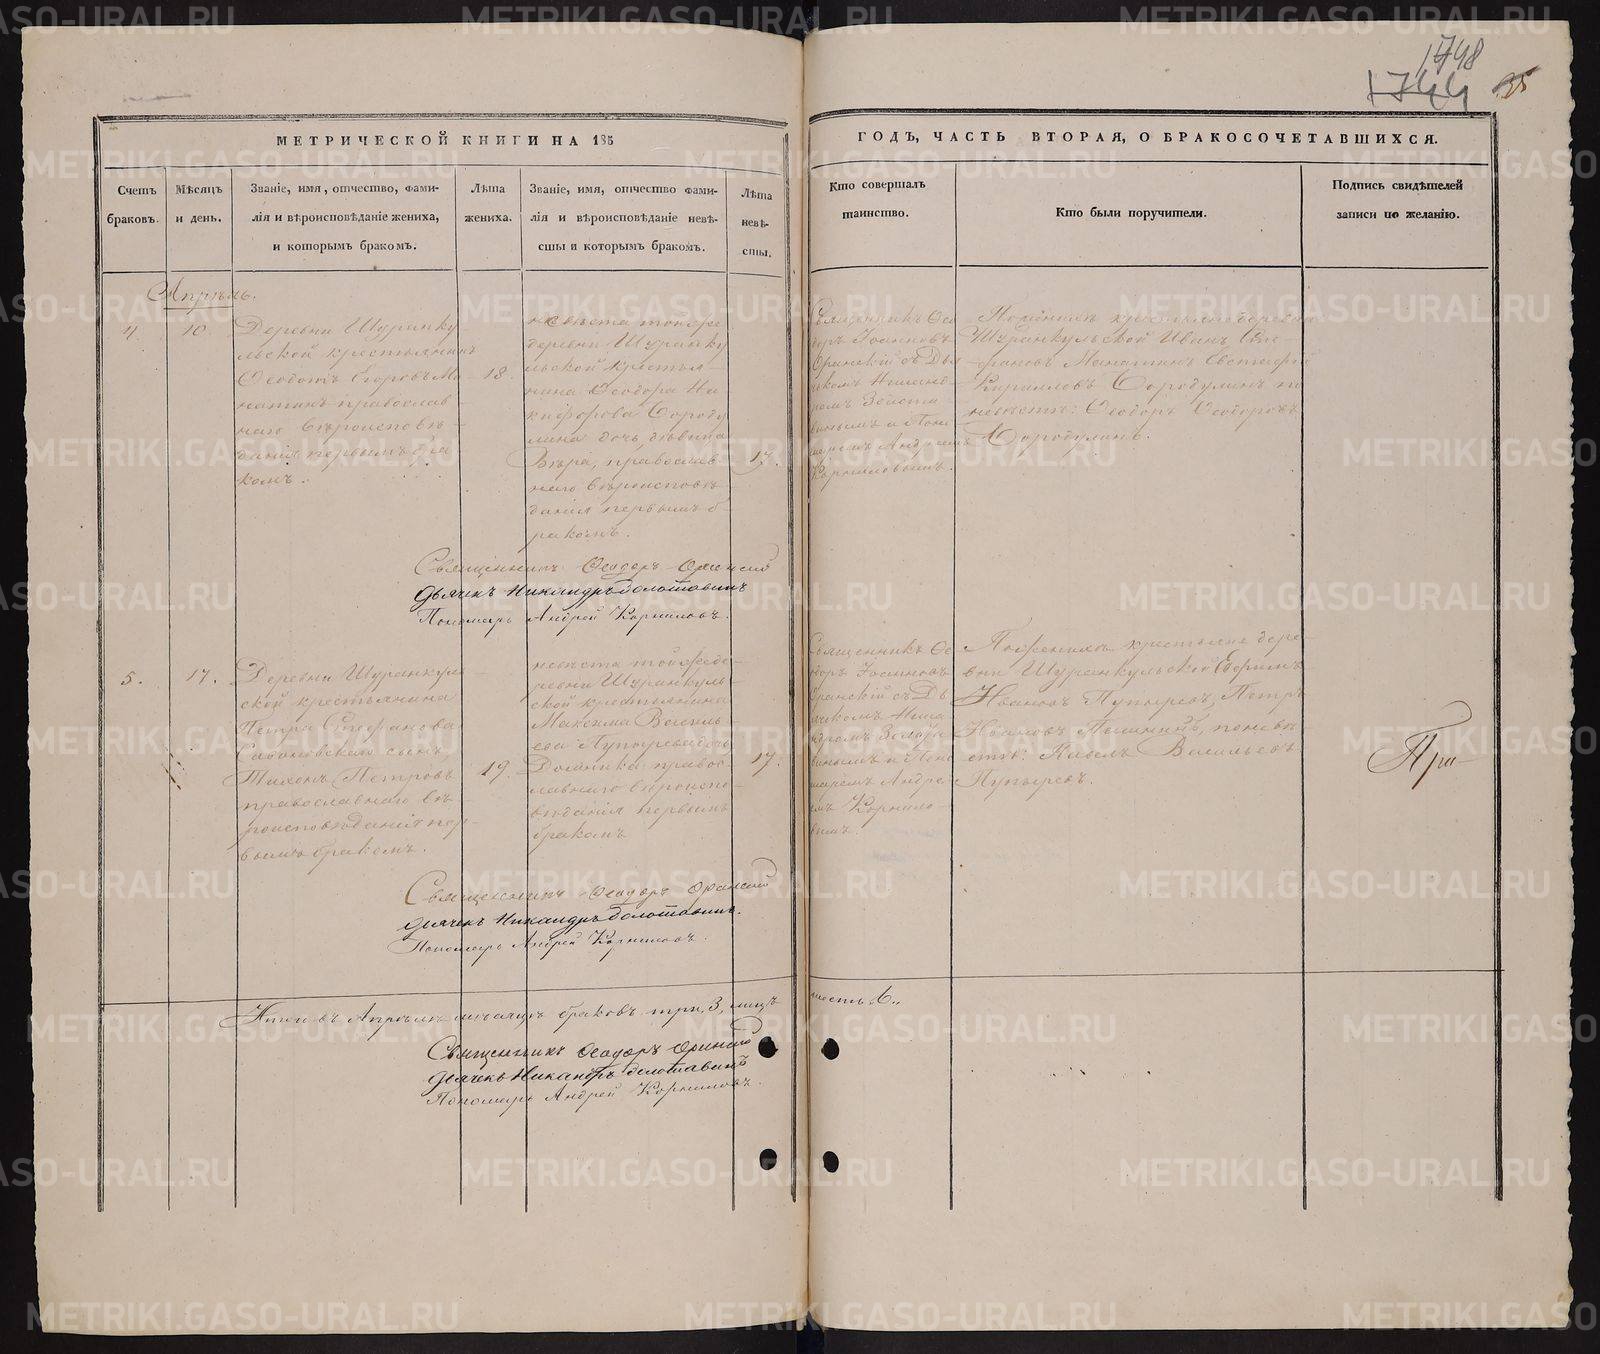 1748
1744
35
МЕТРИЧЕСКОЙ КНИГИ НА 185
ГОДЪ, ЧАСТЬ ВТОРАЯ, О БРАКОСОЧЕТАВШИХСЯ.
Счетъ браковъ.
Мѣсяцъ и день.
Званіе, имя, отчество, фами-
лія и вѣроисповѣданіе жениха,
и которымъ бракомъ.
Лѣта жениха.
Званіе, имя, отчество фами-
лія и вѣроисповѣданіе невѣ-
сты и которымъ бракомъ.
Лѣта невѣ-
сты.
Кто совершалъ
таинство.
Кто были поручители.
Подпись свидѣтелей
записи по желанію.
Апрѣль.
4. 10.
Деревни Шуранку
льской крестьянинъ
Ѳеодотъ Егоровъ Ма
православ
наго вѣроисповѣ
данія первымъ бра
комъ.
18.
невѣста тойже
деревни Шуранку
льской крестья
нина Ѳеодора Ни
кифорова Сороду
лина дочь дѣвица
Вѣра, православ
наго вѣроисповѣ
данія первымъ б
ракомъ.
17.
Священникъ Ѳео
доръ Іоанновъ
Оранскій съ Дья
чкомъ Никанд
ромъ
и Поно
маремъ Андреемъ
Корниловымъ.
По женихѣ крестьяне деревни
Шуранкульской Иванъ Сте
фановъ Евстафій
Кириловъ Сородулинъ по
невѣстѣ: Ѳеодоръ Ѳеодоровъ
Сородулинъ.
Священникъ Ѳеодоръ Оранскій
Дьячекъ Никандръ Золотавинъ
Пономарь Андрей Корниловъ.
5. 17.
Деревни Шуранкуль
ской крестьянина
Петра Стефанова
сынъ
Тихонъ Петровъ
православнаго вѣ
роисповѣданія пер
вымъ бракомъ.
19.
невѣста тойже де
ревни Шуранкуль
ской крестьянина
Максима Василь
ева Пупырева дочь
Домника правос
лавнаго вѣроиспо
вѣданія первымъ
бракомъ
17.
Священникъ Ѳе
одоръ Іоанновъ
Оранскій съ Дь
ячкомъ Ника
ндромъ Золота
винымъ и Поно
маремъ Андре
емъ Корнило
вымъ.
По женихѣ крестьяне дере
вни Шуранкульской Ефимъ
Ивановъ Пупыревъ, Петръ
Ивановъ по невѣ
стѣ: Павелъ Васильевъ
Пупыревъ.
При
Священникъ Ѳеодоръ Оранскій
Дьячекъ Никандръ Золотавинъ.
Пономарь Андрей Корниловъ.
Итого въ Апрѣлѣ мѣсяцѣ браковъ три, 3, лицъ шесть 6.
Священникъ Ѳеодоръ Оранскій
Дьячекъ Никандръ Золотавинъ
Пономарь Андрей Корниловъ.
METRIKI.GASO-URAL.RU